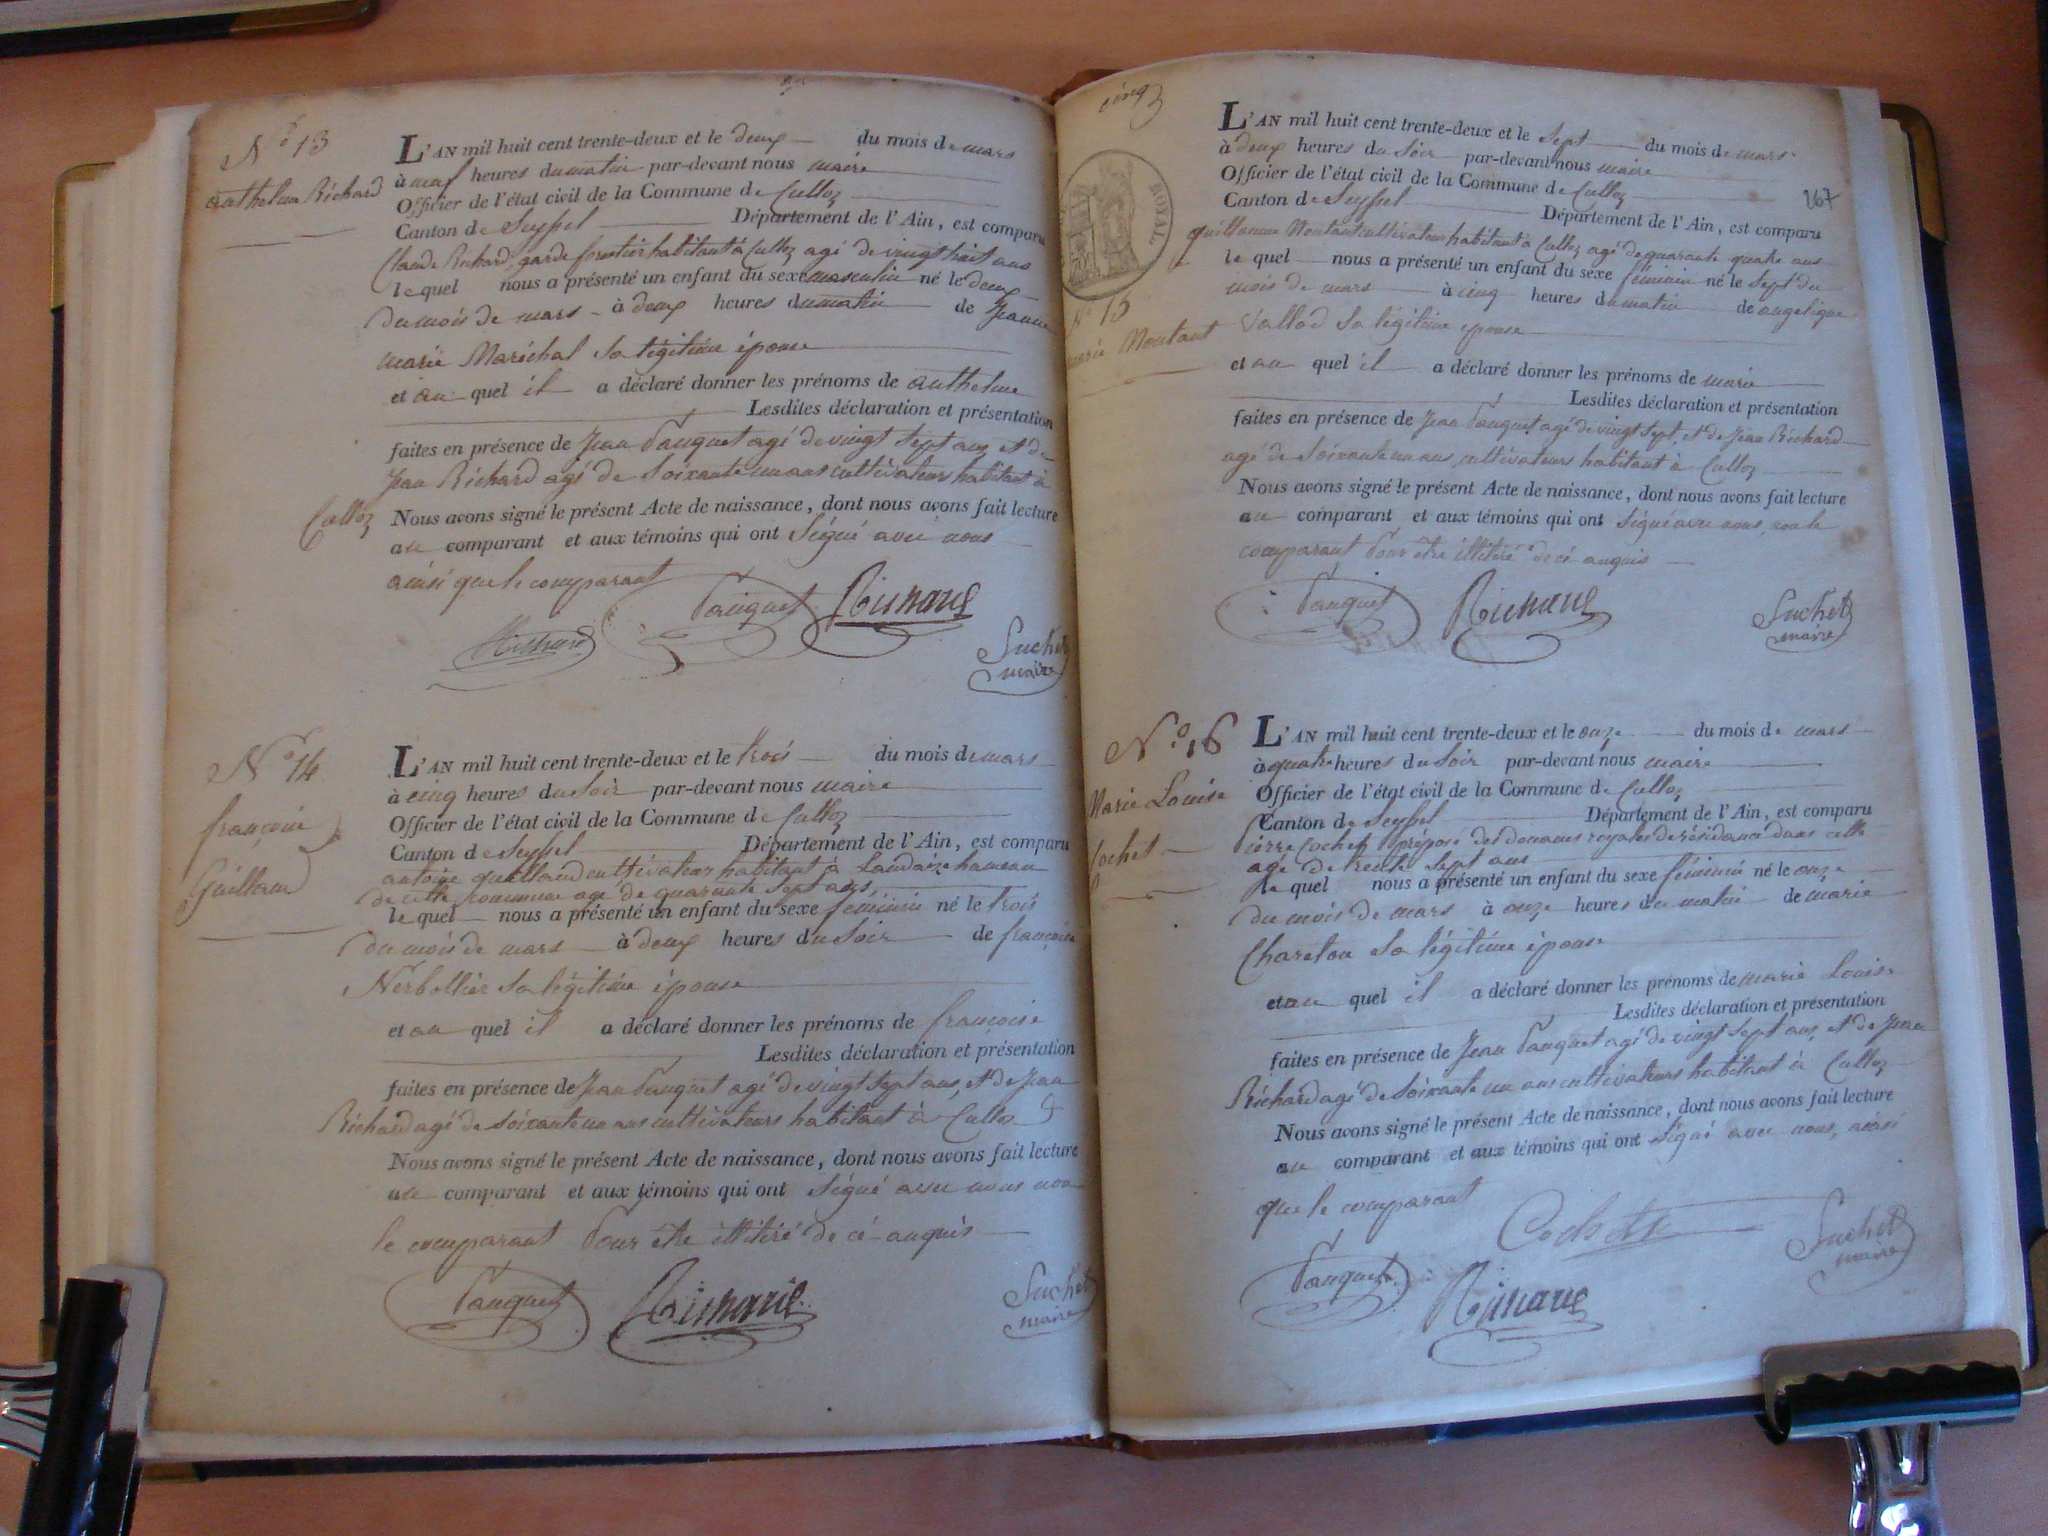 N.º 13
anthelme Richard
L'AN mil huit cent trente-deux et le deux du mois de mars
à neuf heures du matin par-devant nous maire
Officier de l'état civil de la Commune de Culloz
Canton de Seyssel Département de l'Ain, est comparu
Claude Richard, garde forestier habitant à Culloz agé de vingt huit ans
le quel nous a présenté un enfant du sexe masculin né le deux
du mois de mars à deux heures du matin de Jeanne
marie Maréchal sa légitime épouse
et au quel il a déclaré donner les prénoms de anthelme
Lesdites déclaration et présentation
faites en présence de Jean Pauquet agé de vingt sept ans et de
Jean Richard agé de soixante un ans cultivateurs habitant à
Culloz Nous avons signé le présent Acte de naissance, dont nous avons fait lecture
au comparant et aux témoins qui ont signé avec nous
ainsi que le comparant
Richard Pauquet Richard
Suchet
maire
N.º 14
françoise
Guilland
L'AN mil huit cent trente-deux et le trois du mois de mars
à cinq heures du soir par-devant nous maire
Officier de l'état civil de la Commune de Culloz
Canton de Seyssel Département de l'Ain, est comparu
antoine guilland cultivateur habitant à Landaize hameau
de cette commune agé de quarante sept ans
le quel nous a présenté un enfant du sexe féminin né le trois
du mois de mars à deux heures du soir de françoise
Nerbollier sa légitime épouse
et au quel il a déclaré donner les prénoms de françoise
Lesdites déclaration et présentation
faites en présence de Jean Pauquet agé de vingt sept ans, et de Jean
Richard agé de soixante un ans cultivateurs habitant à Culloz
Nous avons signé le présent Acte de naissance, dont nous avons fait lecture
au comparant et aux témoins qui ont signé avec nous non
le comparant pour être illitéré de cé anquis
Pauquet Richard Suchet
maire
cinq
267
ROYAL
N.º 15
marie Moutant
L'AN mil huit cent trente-deux et le sept du mois de mars
à deux heures du soir par-devant nous maire
Officier de l'état civil de la Commune de Culloz
Canton de Seyssel Département de l'Ain, est comparu
guillaume Moutant cultivateur habitant à Culloz agé de quarante quatre ans
le quel nous a présenté un enfant du sexe féminin né le sept du
mois de mars à cinq heures du matin de angelique
Vallod sa légitime épouse
et au quel il a déclaré donner les prénoms de marie
Lesdites déclaration et présentation
faites en présence de Jean Pauquet agé de vingt sept, et de Jean Richard
agé de soixante un ans cultivateurs habitant à Culloz
Nous avons signé le présent Acte de naissance, dont nous avons fait lecture
au comparant et aux témoins qui ont signé avec nous, non le
comparant pour être illitéré de cé anquis
Pauquet Richard Suchet
maire
N.º 16
Marie Louise
Cochet
L'AN mil huit cent trente-deux et le onze du mois de mars
à quatre heures du soir par-devant nous maire
Officier de l'état civil de la Commune de Culloz
Canton de Seyssel Département de l'Ain, est comparu
Pierre Cochet préposé des douanes royales de résidence dans cette
agé de trente sept ans
le quel nous a présenté un enfant du sexe féminin né le onze
du mois de mars à onze heures du matin de marie
Chareton sa légitime épouse
et au quel il a déclaré donner les prénoms de marie Louise
Lesdites déclaration et présentation
faites en présence de Jean Pauquet agé de vingt sept ans, et de Jean
Richard agé de soixante un ans cultivateurs habitant à Culloz
Nous avons signé le présent Acte de naissance, dont nous avons fait lecture
au comparant et aux témoins qui ont signé avec nous, ainsi
que le comparant
Cochet Suchet
maire
Pauquet Richard